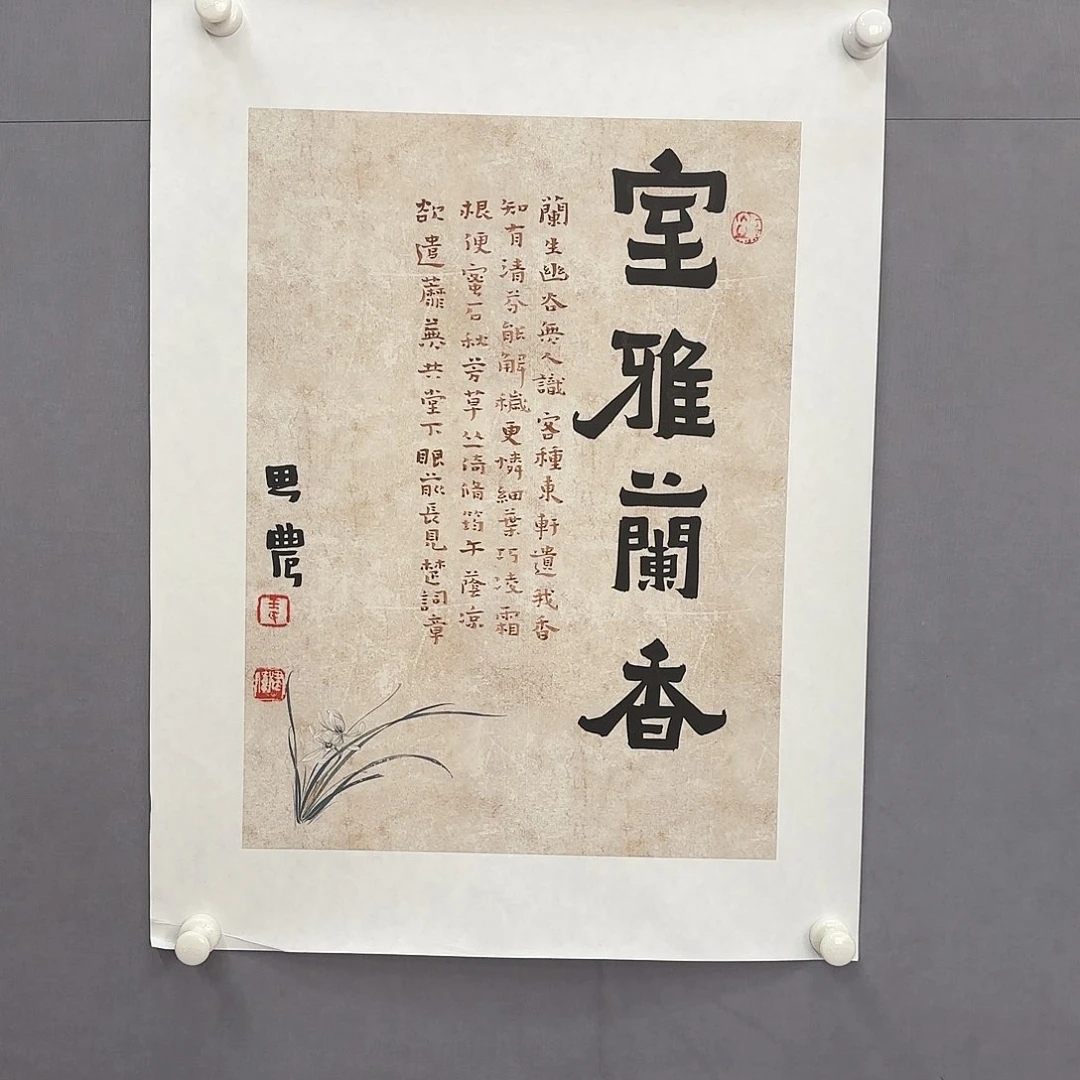 室雅蘭香
蘭生幽谷無人識客種東軒遺我香
知有清芬能解穢更憐細葉巧凌霜
根便蜜石秋芳草丛倚脩筠午蔭凉
欲遣蘼蕪共堂下眼前長見楚詞章
農